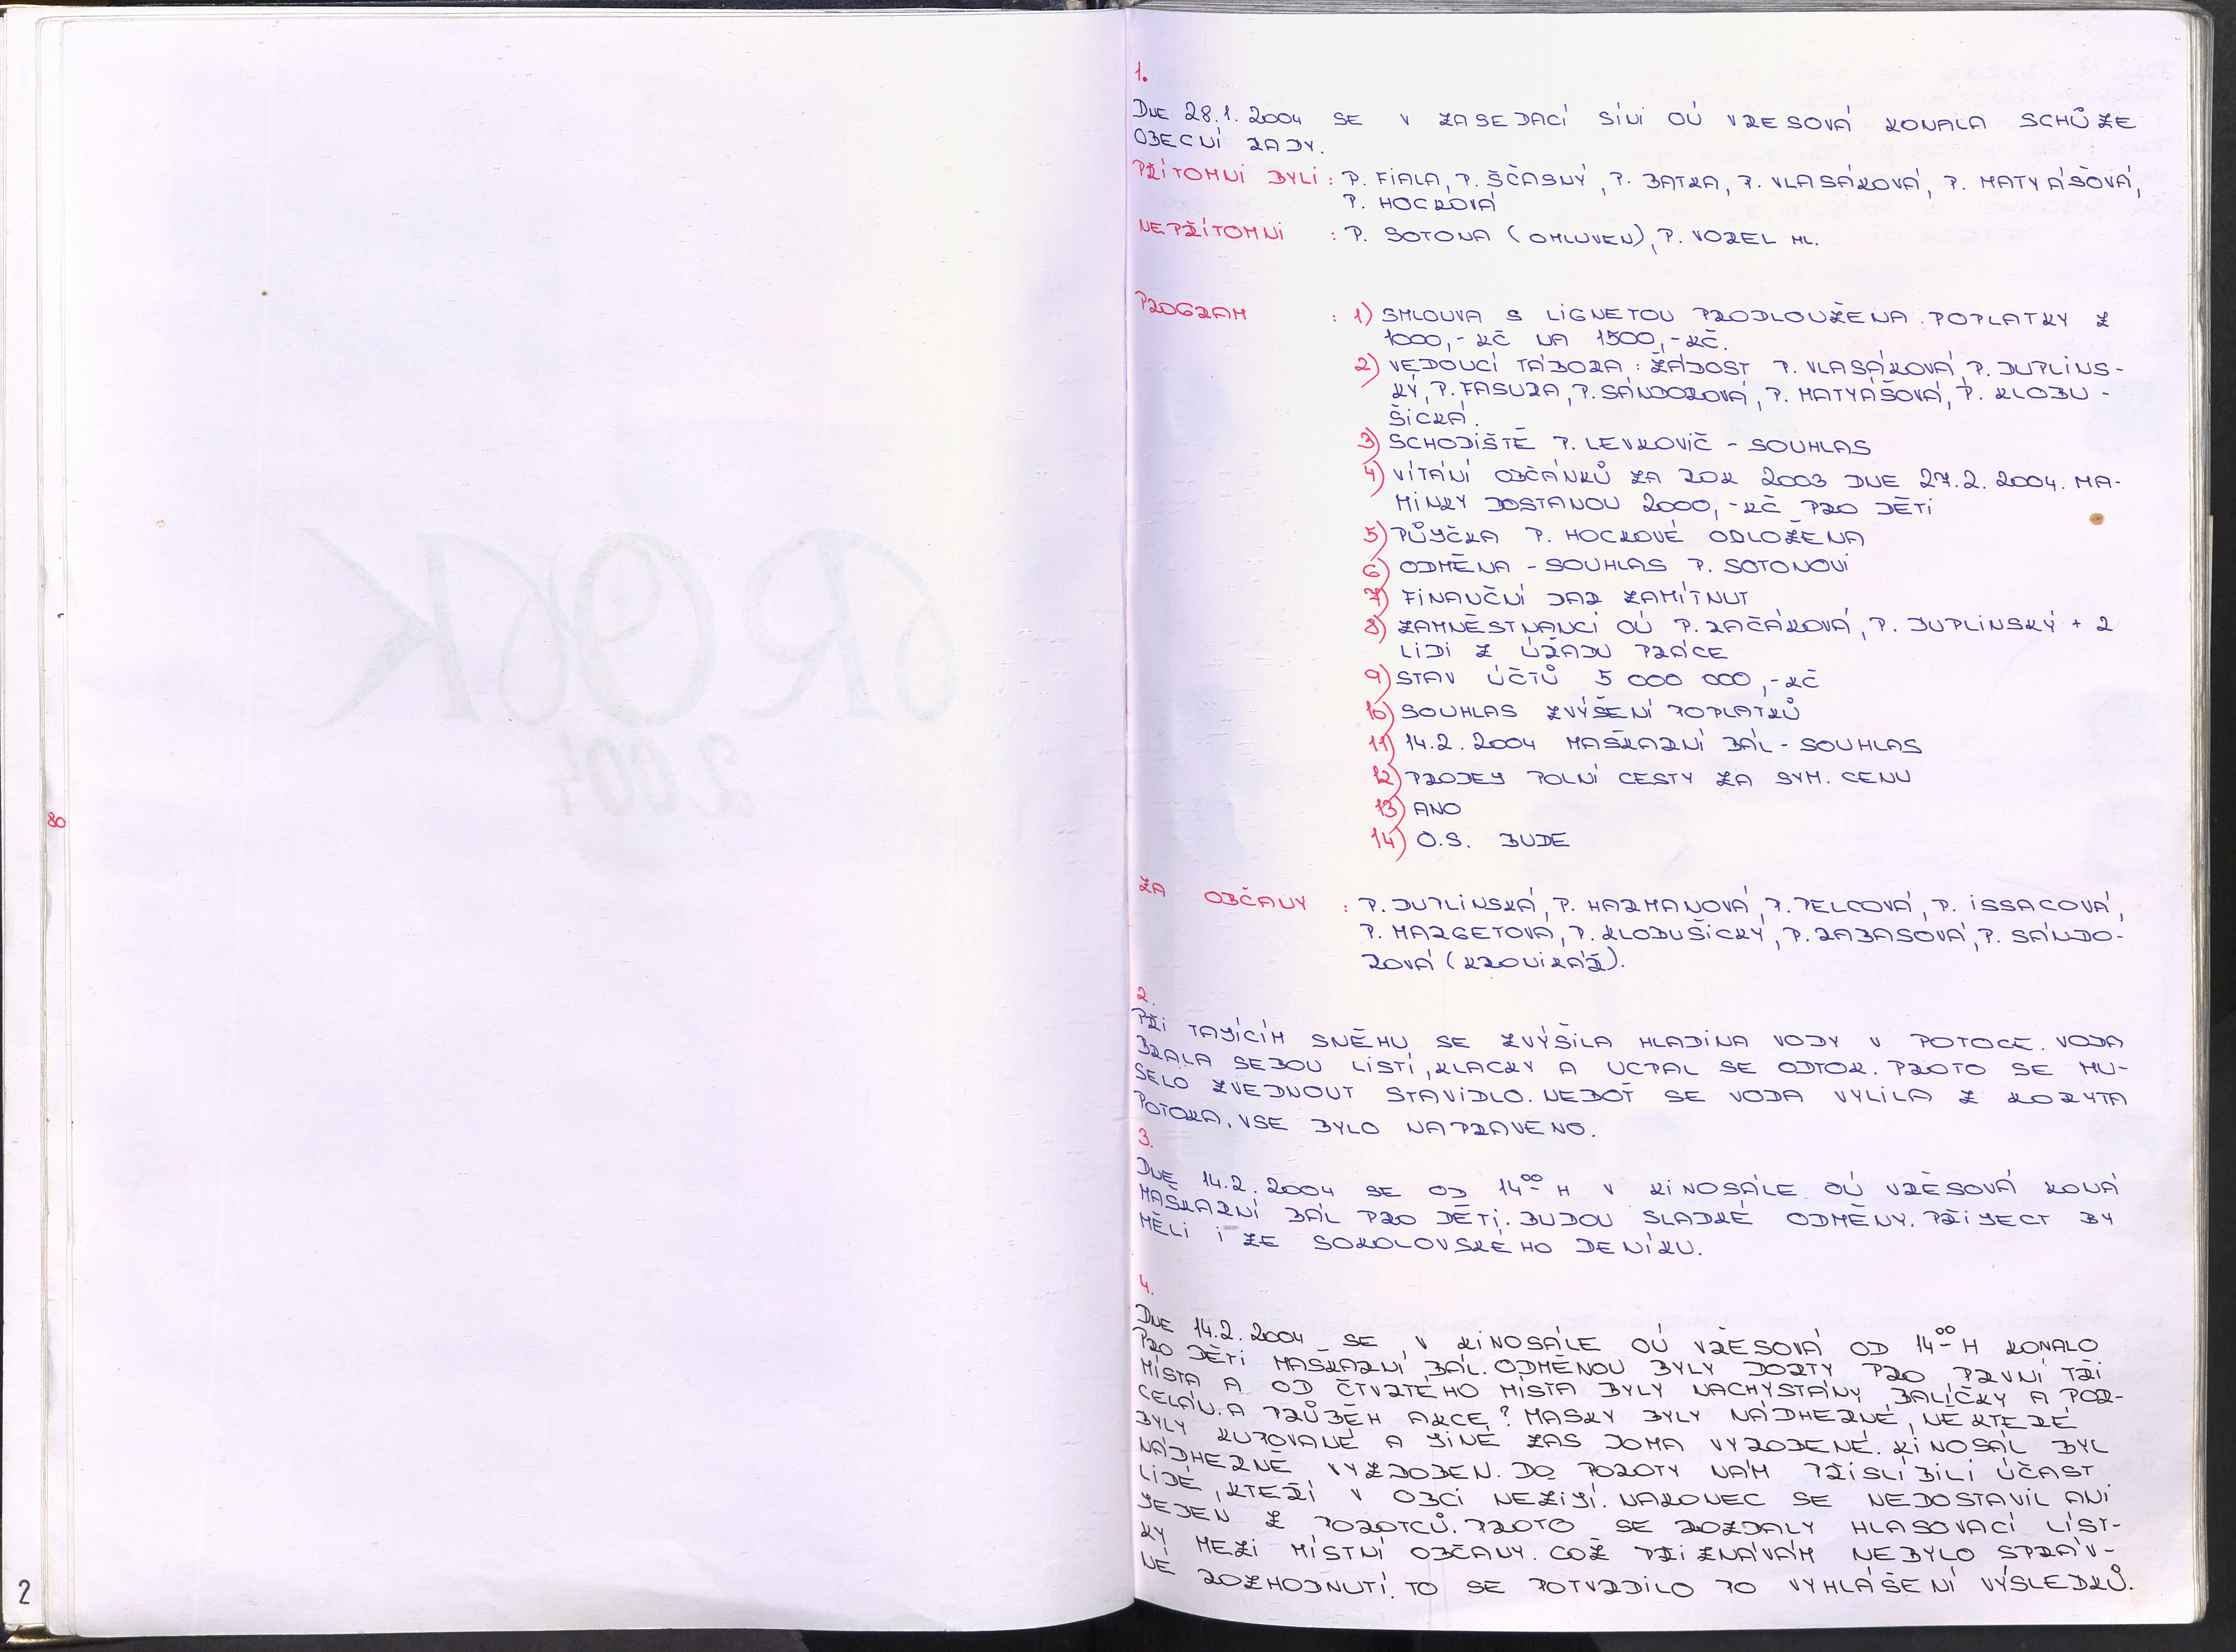 1.
DNE 28.1. 2004 SE V ZASEDACÍ SÍNI OÚ VŘESOVÁ KONALA SCHŮZE
OBECNÍ RADY.
PŘÍTOMNI BYLI : P. FIALA, P. ŠČASNÝ, P. BATKA, P. VLASÁKOVÁ, P. MATYÁŠOVÁ,
P. HOCKOVÁ
NEPŘÍTOMNI : P. SOTONA (OMLUVEN), P. VOREL ML.
PROGRAM : 1) SMLOUVA S LIGNETOU PRODLOUŽENA. POPLATKY Z
1000,- KČ NA 1500,- KČ.
2) VEDOUCÍ TÁBORA : ŽÁDOST P. VLASÁKOVÁ, P. DUPLINS-
KÝ, P. FASURA, P. SÁNDOROVÁ, P. MATYÁŠOVÁ, P. KLOBU-
ŠICKÁ.
3) SCHODIŠTĚ P. LEVKOVIČ - SOUHLAS
4) VÍTÁNÍ OBČÁNKŮ ZA ROK 2003 DNE 27.2. 2004. MA-
MINKY DOSTANOU 2000,- KČ PRO DĚTI
5) PŮJČKA P. HOCKOVÉ ODLOŽENA
6) ODMĚNA - SOUHLAS P. SOTONOVI
7) FINANČNÍ DAR ZAMÍTNUT
8) ZAMNĚSTNANCI OÚ P. RAČÁKOVÁ, P. DUPLINSKÝ + 2
LIDI Z ÚŘADU PRÁCE
9) STAV ÚČTŮ 5 000 000,- KČ
10) SOUHLAS ZVÝŠENÍ POPLATKŮ
11) 14.2. 2004 MAŠKARNÍ BÁL - SOUHLAS
12) PRODEJ POLNÍ CESTY ZA SYM. CENU
13) ANO
14) O.S. BUDE
ZA OBČANY : P. DUPLINSKÁ, P. HARMANOVÁ, P. PELCOVÁ, P. ISSACOVÁ,
P. MARGETOVÁ, P. KLOBUŠICKÝ, P. RABASOVÁ, P. SÁNDO-
ROVÁ (KRONIKÁŘ).
2.
PŘI TAJÍCÍM SNĚHU SE ZVÝŠILA HLADINA VODY V POTOCE. VODA
BRALA SEBOU LISTÍ, KLACKY A UCPAL SE ODTOK. PROTO SE MU-
SELO ZVEDNOUT STAVIDLO. NEBOŤ SE VODA VYLILA Z KORYTA
POTOKA. VSE BYLO NAPRAVENO.
3.
DNE 14.2. 2004 SE OD 14 00 H V KINOSÁLE OÚ VŘESOVÁ KONÁ
MAŠKARNÍ BÁL PRO DĚTI. BUDOU SLADKÉ ODMĚNY. PŘIJECT BY
MĚLI I ZE SOKOLOVSKÉHO DENÍKU.
4.
DNE 14.2. 2004 SE V KINOSÁLE OÚ VŘESOVÁ OD 14 00 H KONALO
PRO DĚTI MAŠKARNÍ BÁL. ODMĚNOU BYLY DORTY PRO PRVNÍ TŘI
MÍSTA A OD ČTVRTÉHO MÍSTA BYLY NACHYSTÁNY BALÍČKY A POR-
CELÁN. A PRŮBĚH AKCE? MASKY BYLY NÁDHERNÉ, NĚKTERÉ
BYLY KUPOVANÉ A JINÉ ZAS DOMA VYROBENÉ. KINOSÁL BYL
NÁDHERNĚ VYZDOBEN. DO POROTY NÁM PŘISLÍBILI ÚČAST
LIDÉ, KTEŘÍ V OBCI NEŽIJÍ. NAKONEC SE NEDOSTAVIL ANI
JEDEN Z POROTCŮ. PROTO SE ROZDALY HLASOVACÍ LÍST-
KY MEZI MÍSTNÍ OBČANY. COŽ PŘIZNÁVÁM NEBYLO SPRÁV-
NÉ ROZHODNUTÍ. TO SE POTVRDILO PO VYHLÁŠENÍ VÝSLEDKŮ.
80
2